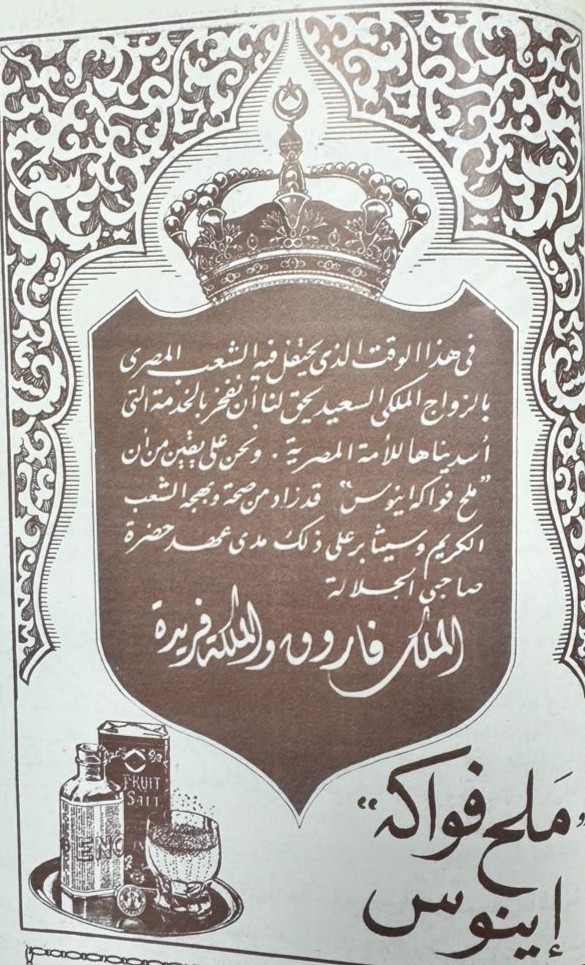 في هذا الوقت الذي يحتفل فيه الشعب المصري
بالزواج الملكي السعيد يحق لنا أن نفخر بالخدمة التي
أسديناها للأمة المصرية . ونحن على يقين من أن
"ملح فواكه اينوس" قد زاد من صحة وبهجة الشعب
الكريم وسيثابر على ذلك مدى عهد حضرة
صاحبي الجلالة
الملك فاروق والملكة فريدة
FRUIT
SALT
ENO
"ملح فواكه"
إينوس